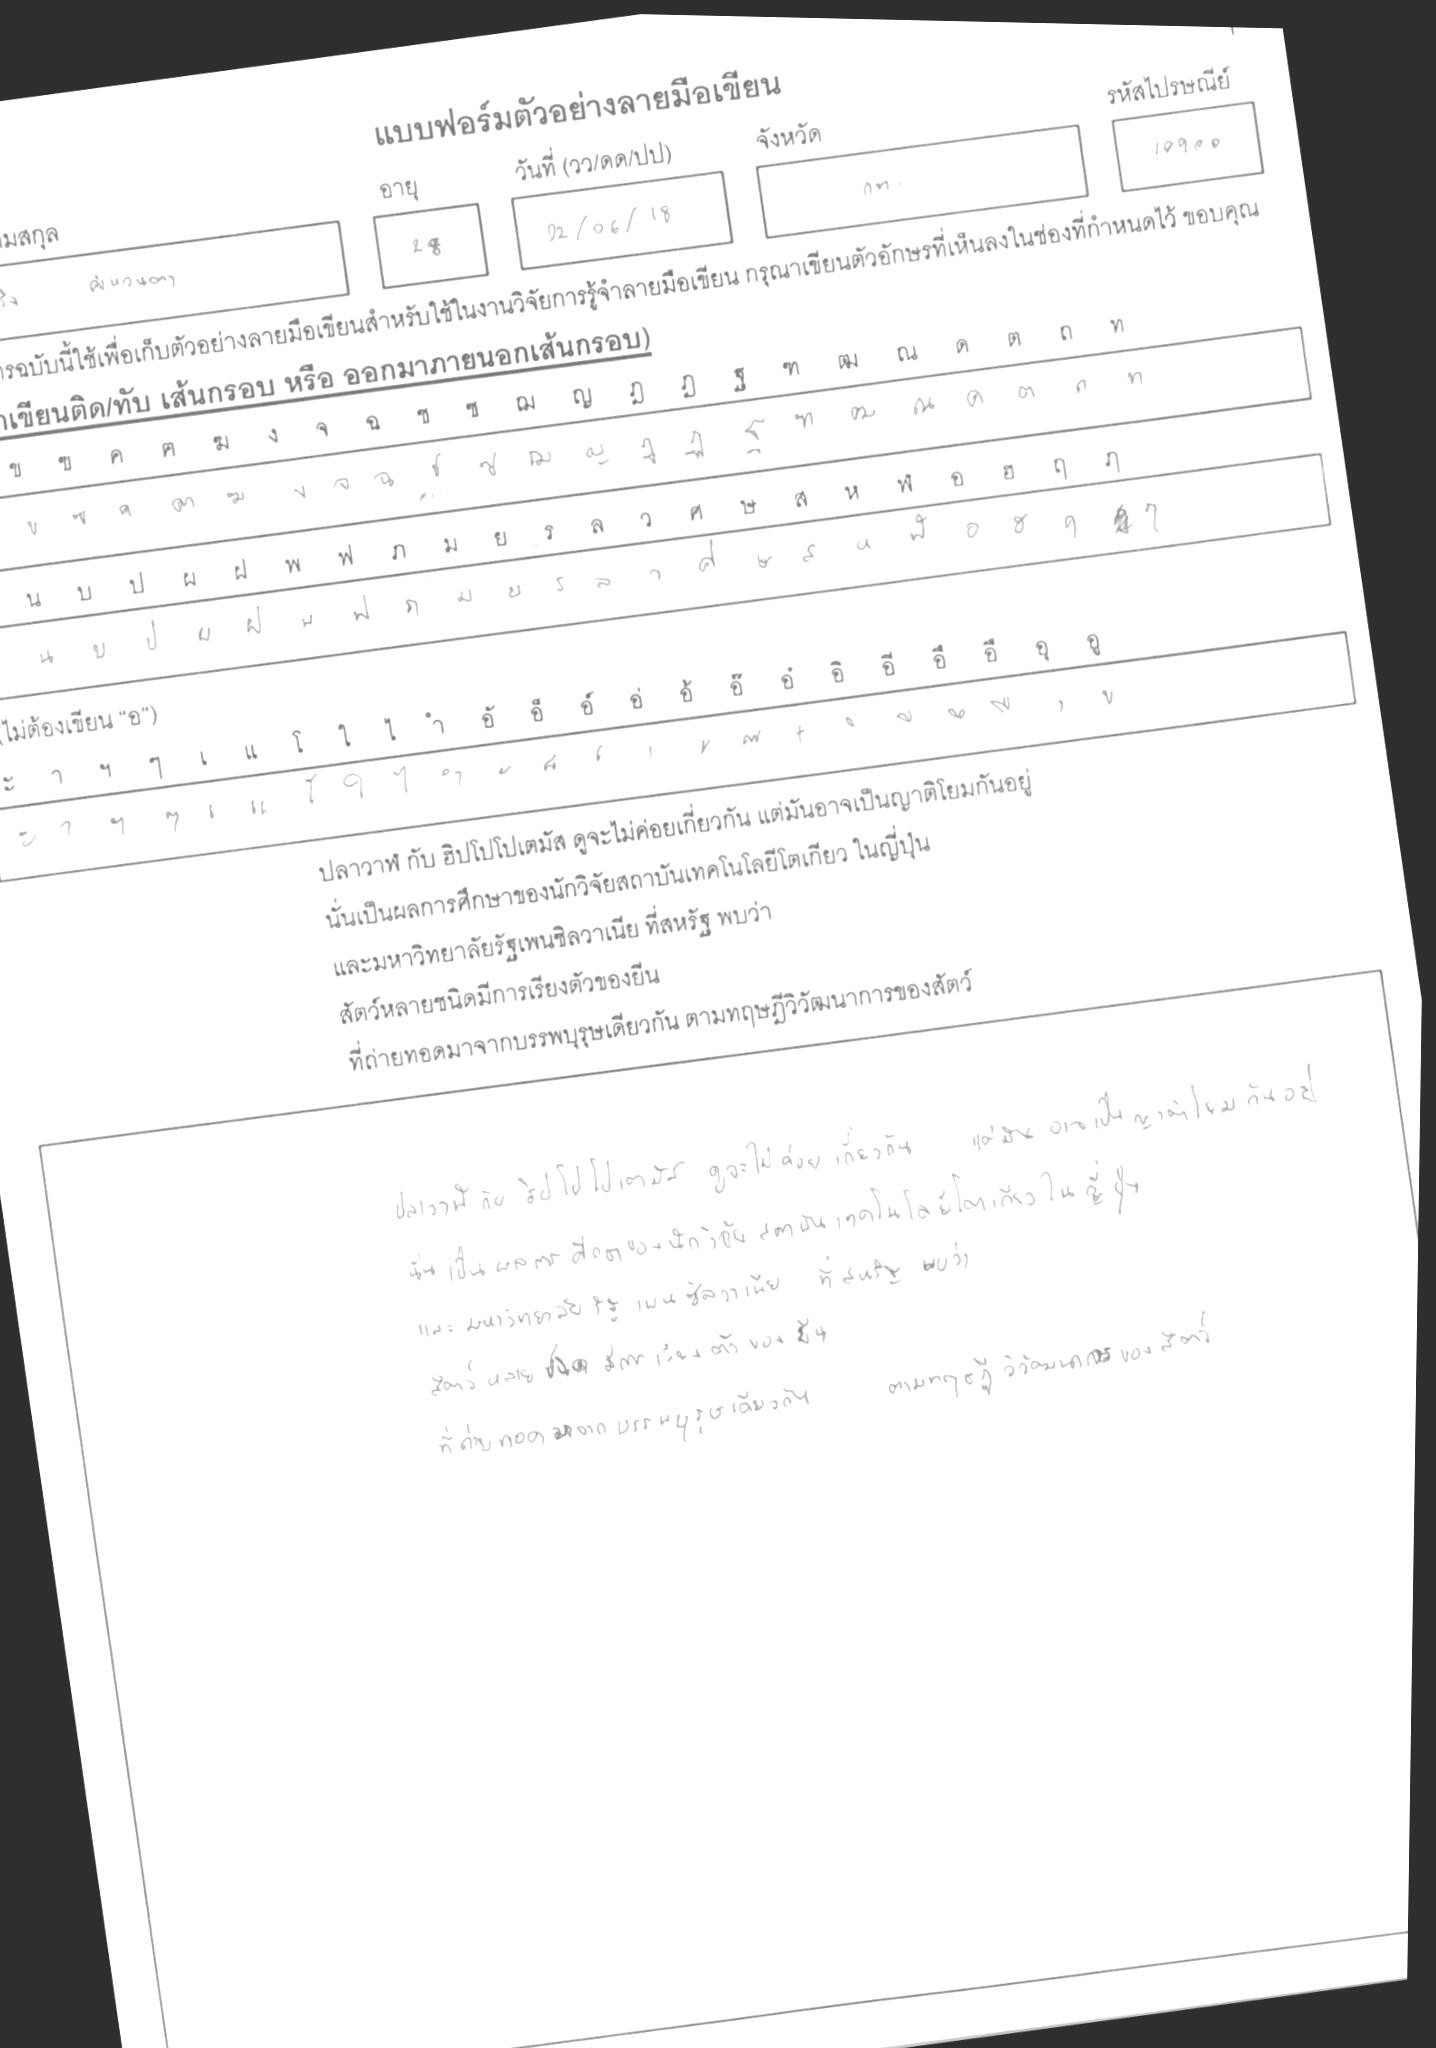 แบบฟอร์มตัวอย่างลายมือเขียน
อายุ วันที่ (วว/ดด/ปป) จังหวัด รหัสไปรษณีย์
28 22/06/18 กท. 10900
ารฉบับนี้ใช้เพื่อเก็บตัวอย่างลายมือเขียนสำหรับใช้ในงานวิจัยการรู้จำลายมือเขียน กรุณาเขียนตัวอักษรที่เห็นลงในช่องที่กำหนดไว้ ขอบคุณ
าเขียนติด/ทับ เส้นกรอบ หรือ ออกมาภายนอกเส้นกรอบ)
ข ฃ ค ฅ ฆ ง จ ฉ ช ซ ฌ ญ ฎ ฏ ฐ ฑ ฒ ณ ด ต ถ ท
ข ฃ ค ฅ ฆ ง จ ฉ ช ซ ฌ ญ ฎ ฏ ฐ ฑ ฒ ณ ด ต ถ ท
น บ ป ผ ฝ พ ฟ ภ ม ย ร ล ว ศ ษ ส ห ฬ อ ฮ ฤ ฦ
น บ ป ผ ฝ พ ฟ ภ ม ย ร ล ว ศ ษ ส ห ฬ อ ฮ ฤ ฦ
(ไม่ต้องเขียน “อ”)
ะ า ฯ ๆ เ แ โ ใ ไ ำ อั อ็ อ์ อ่ อ้ อ๊ อ๋ อิ อี อึ อื อุ อู
ะ า ฯ ๆ เ แ โ ใ ไ ำ ั ็ ์ ่ ้ ๊ ๋ ิ ี ึ ื ุ ู
ปลาวาฬ กับ ฮิปโปโปเตมัส ดูจะไม่ค่อยเกี่ยวกัน แต่มันอาจเป็นญาติโยมกันอยู่
นั่นเป็นผลการศึกษาของนักวิจัยสถาบันเทคโนโลยีโตเกียว ในญี่ปุ่น
และมหาวิทยาลัยรัฐเพนซิลวาเนีย ที่สหรัฐ พบว่า
สัตว์หลายชนิดมีการเรียงตัวของยีน
ที่ถ่ายทอดมาจากบรรพบุรุษเดียวกัน ตามทฤษฎีวิวัฒนาการของสัตว์
ปลาวาฬ กับ ฮิปโปโปเตมัส ดูจะไม่ค่อยเกี่ยวกัน แต่มันอาจเป็นญาติโยมกันอยู่
นั่นเป็นผลการศึกษาของนักวิจัยสถาบันเทคโนโลยีโตเกียว ในญี่ปุ่น
และมหาวิทยาลัยรัฐเพนซิลวาเนีย ที่สหรัฐ พบว่า
สัตว์หลายชนิดมีการเรียงตัวของยีน
ที่ถ่ายทอดมาจากบรรพบุรุษเดียวกัน ตามทฤษฎีวิวัฒนาการของสัตว์